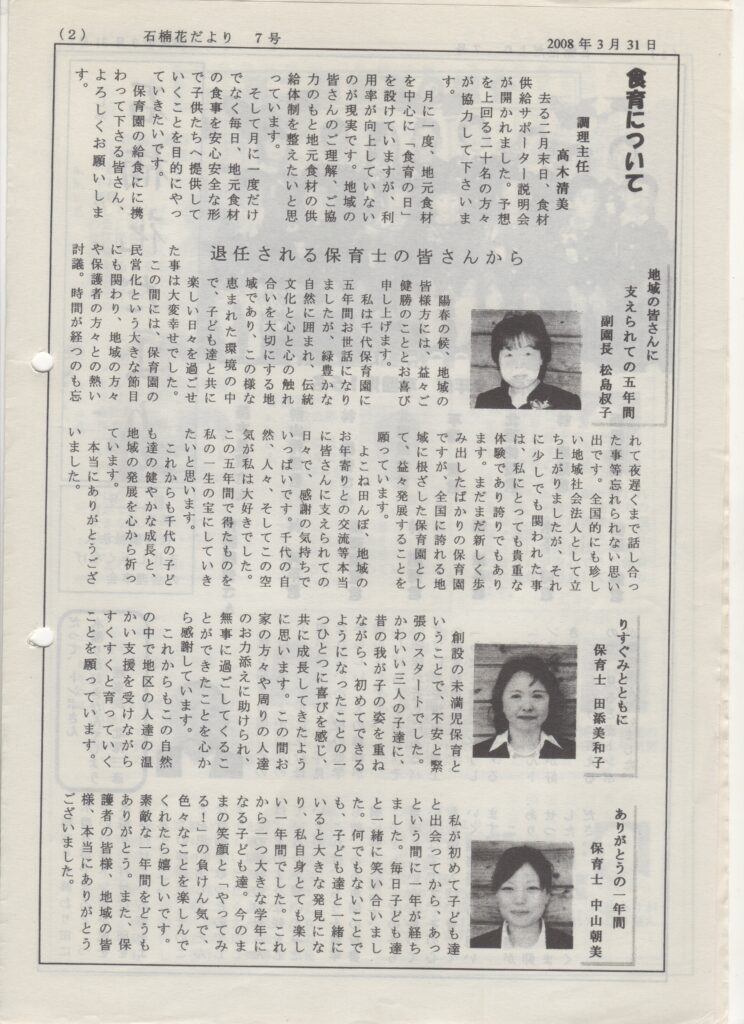 (2)
石楠花だより　7号
2008年3月31日
食育について
調理主任
高木清美
去る二月末日、食材
供給サポーター説明会
が開かれました。予想
を上回る二十名の方々
が協力して下さいま
す。
月に一度、地元食材
を中心に「食育の日」
を設けていますが、利
用率が向上していない
のが現実です。地域の
皆さんのご理解、ご協
力のもと地元食材の供
給体制を整えたいと思
っています。
そして月に一度だけ
でなく毎日、地元食材
の食事を安心安全な形
で子供たちへ提供して
いくことを目的にやっ
ていきたいです。
保育園の給食にに携
わって下さる皆さん、
よろしくお願いしま
す。
退任される保育士の皆さんから
地域の皆さんに
支えられての五年間
副園長　松島叔子
陽春の候、地域の
皆様方には、益々ご
健勝のこととお喜び
申し上げます。
私は千代保育園に
五年間お世話になり
ましたが、緑豊かな
自然に囲まれ、伝統
文化と心と心の触れ
合いを大切にする地
域であり、この様な
恵まれた環境の中
で、子ども達と共に
楽しい日々を過ごせ
た事は大変幸せでした。
この間には、保育園の
民営化という大きな節目
にも関わり、地域の方々
や保護者の方々との熱い
討議。時間が経つのも忘
れて夜遅くまで話し合っ
た事等忘れられない思い
出です。全国的にも珍し
い地域社会法人として立
ち上がりましたが、それ
に少しでも関われた事
は、私にとっても貴重な
体験であり誇りでもあり
ます。まだまだ新しく歩
み出したばかりの保育園
ですが、全国に誇れる地
域に根ざした保育園とし
て、益々発展することを
願っています。
よこね田んぼ、地域の
お年寄りとの交流等本当
に皆さんに支えられての
日々で、感謝の気持ちで
いっぱいです。千代の自
然、人々、そしてこの空
気が私は大好きでした。
この五年間で得たものを
私の一生の宝にしていき
たいと思います。
これからも千代の子ど
も達の健やかな成長と、
地域の発展を心から祈っ
ています。
本当にありがとうござ
いました。
りすぐみとともに
保育士　田添美和子
創設の未満児保育と
いうことで、不安と緊
張のスタートでした。
かわいい三人の子達に、
昔の我が子の姿を重ね
ながら、初めてできる
ようになったことの一
つひとつに喜びを感じ、
共に成長してきたよう
に思います。この間お
家の方々や周りの人達
のお力添えに助けられ、
無事に過ごしてくるこ
とができたことを心か
ら感謝しています。
これからもこの自然
の中で地区の人達の温
かい支援を受けながら
すくすくと育っていく
ことを願っています。
ありがとうの一年間
保育士　中山朝美
私が初めて子ども達
と出会ってから、あっ
という間に一年が経ち
ました。毎日子ども達
と一緒に笑い合いまし
た。何でもないことで
も、子ども達と一緒に
いると大きな発見にな
り、私自身とても楽し
い一年間でした。これ
から一つ大きな学年に
なる子ども達。今のま
まの笑顔と「やってみ
る！」の負けん気で、
色々なことを楽しんで
くれたら嬉しいです。
素敵な一年間をどうも
ありがとう。また、保
護者の皆様、地域の皆
様、本当にありがとう
ございました。